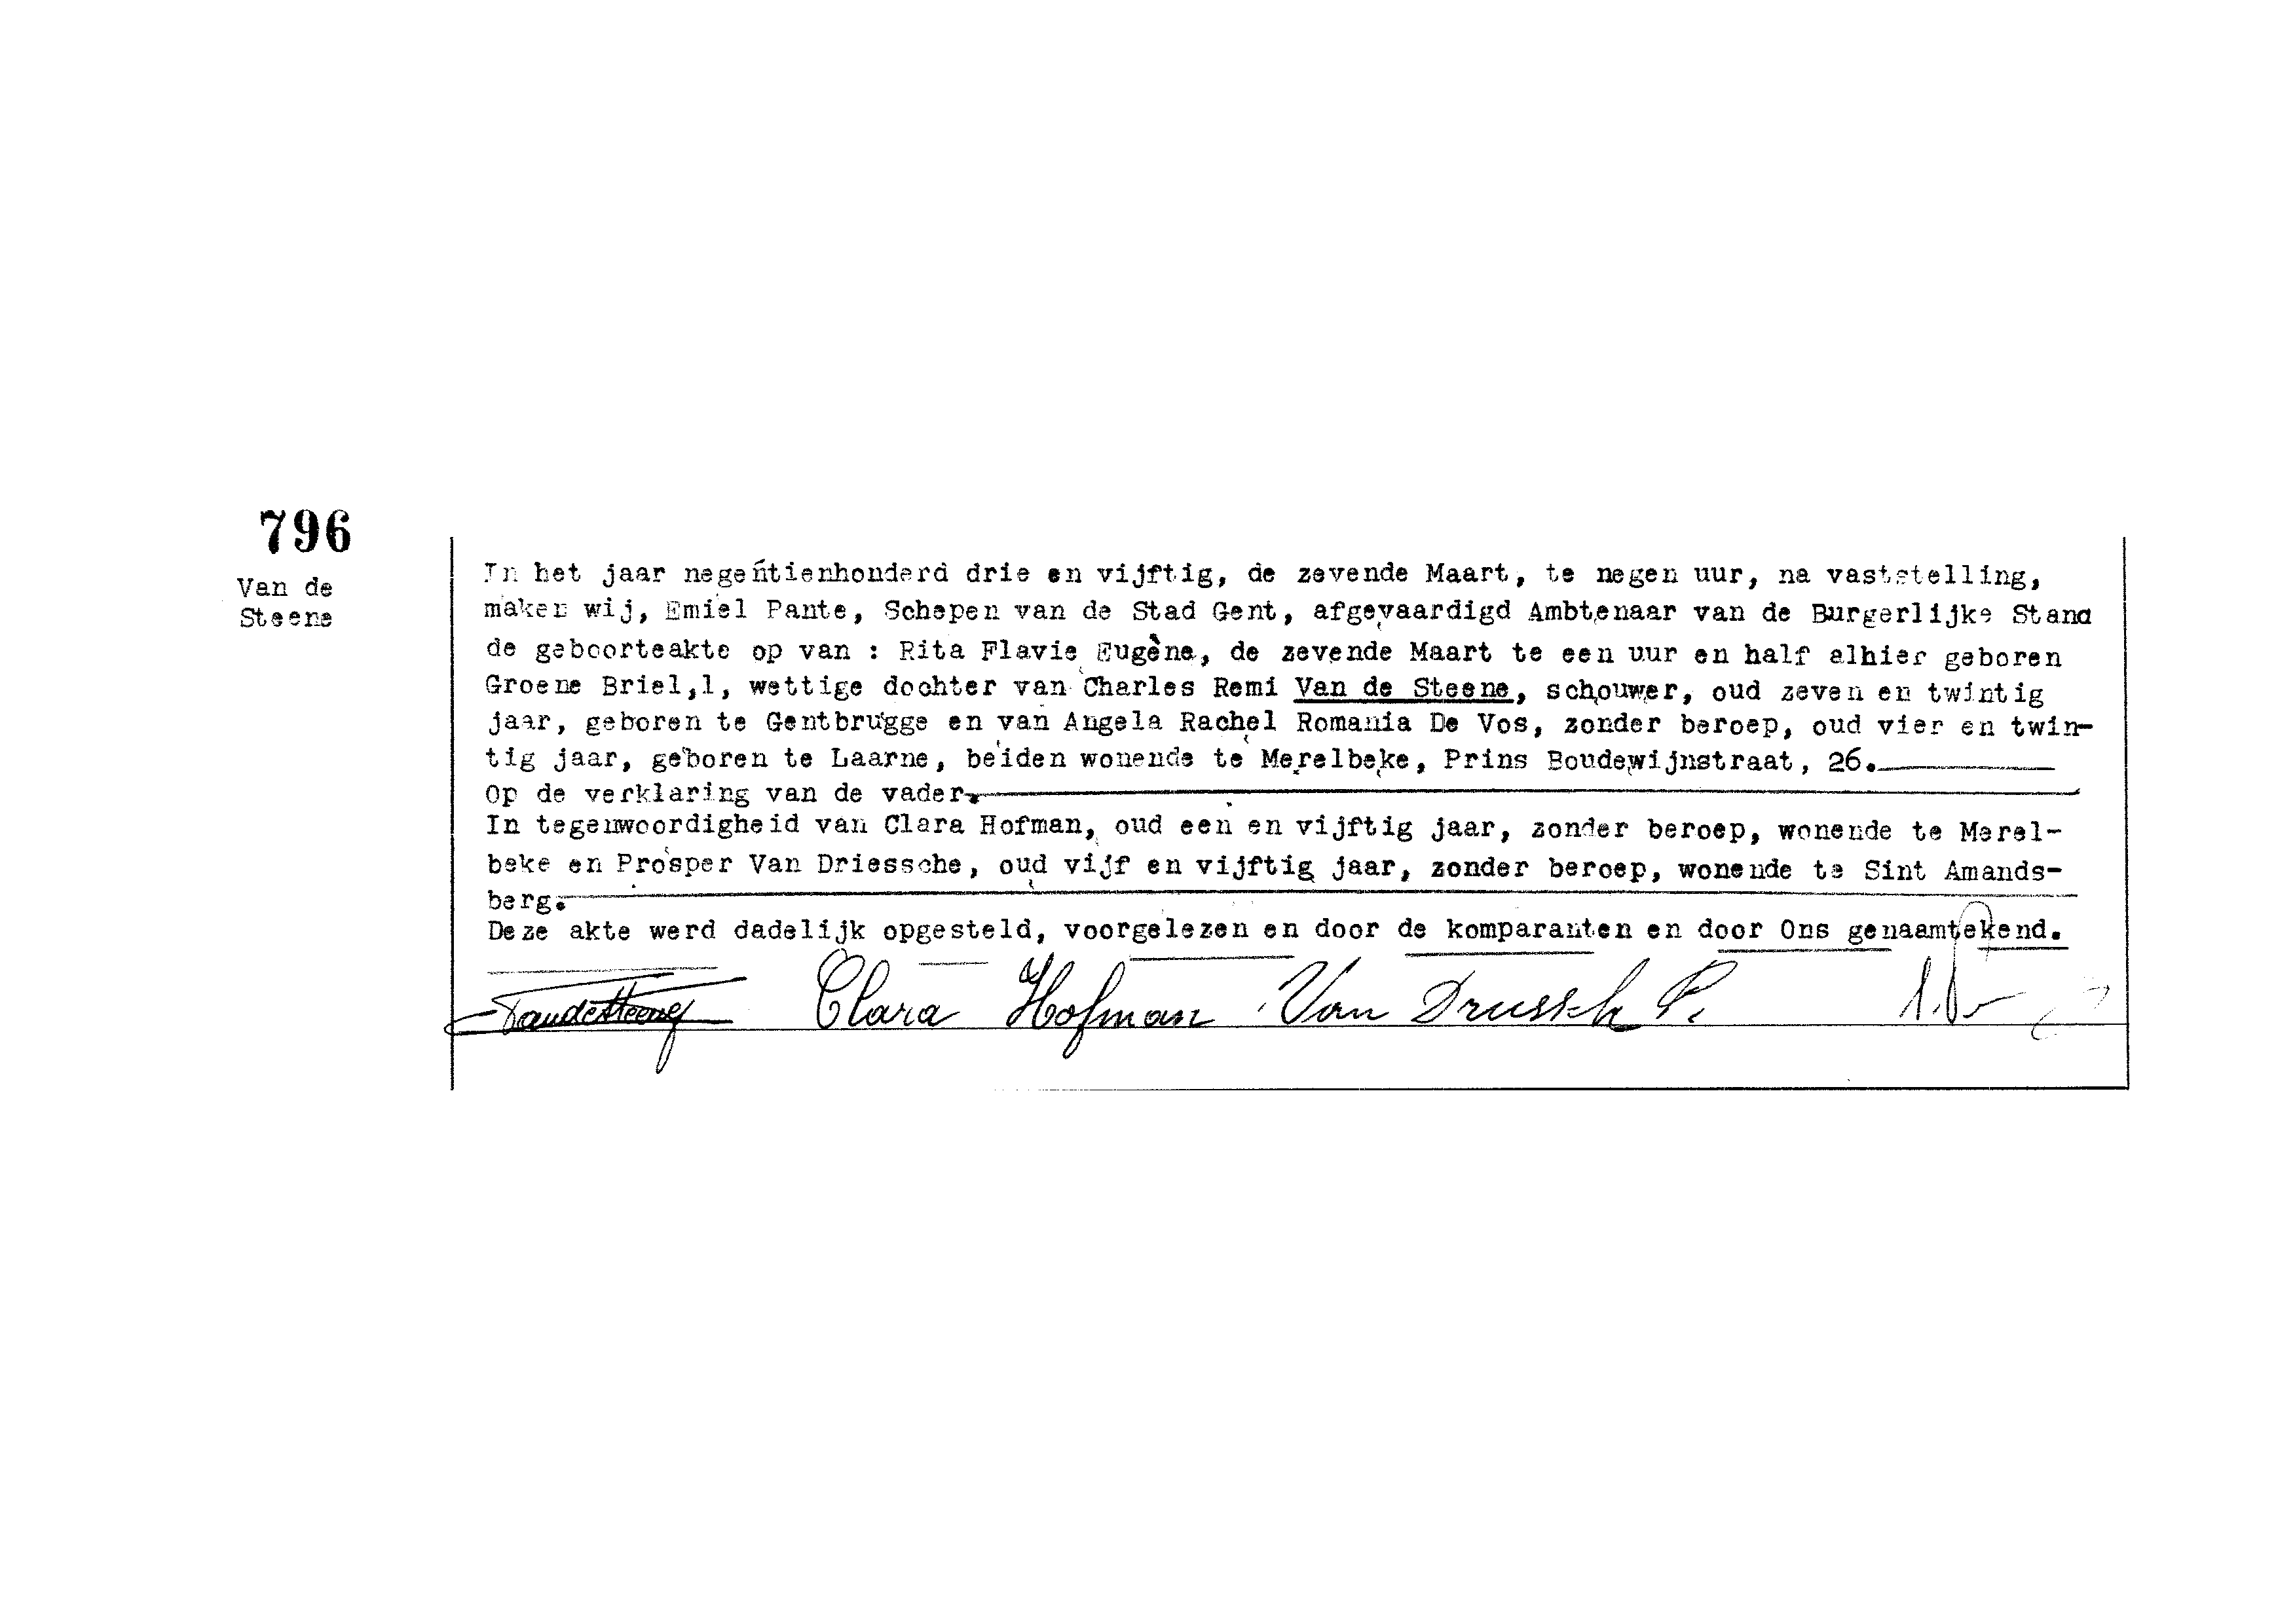 796
Van de
Steene
In het jaar negentienhonderd drie en vijftig, de zevende Maart, te negen uur, na vaststelling,
maken wij, Emiel Pante, Schepen van de Stad Gent, afgevaardigd Ambtenaar van de Burgerlijke Stand
de geboorteakte op van : Rita Flavie Eugène, de zevende Maart te een uur en half alhier geboren
Groene Briel,1, wettige dochter van Charles Remi Van de Steene, schouwer, oud zeven en twintig
jaar, geboren te Gentbrugge en van Angela Rachel Romania De Vos, zonder beroep, oud vier en twin-
tig jaar, geboren te Laarne, beiden wonende te Merelbeke, Prins Boudewijnstraat, 26.
Op de verklaring van de vader.
In tegenwoordigheid van Clara Hofman, oud een en vijftig jaar, zonder beroep, wonende te Merel-
beke en Prosper Van Driessche, oud vijf en vijftig jaar, zonder beroep, wonende te Sint Amands-
berg.
Deze akte werd dadelijk opgesteld, voorgelezen en door de komparanten en door Ons genaamtekend.
Vandesteene Clara Hofman Van Driessche P.